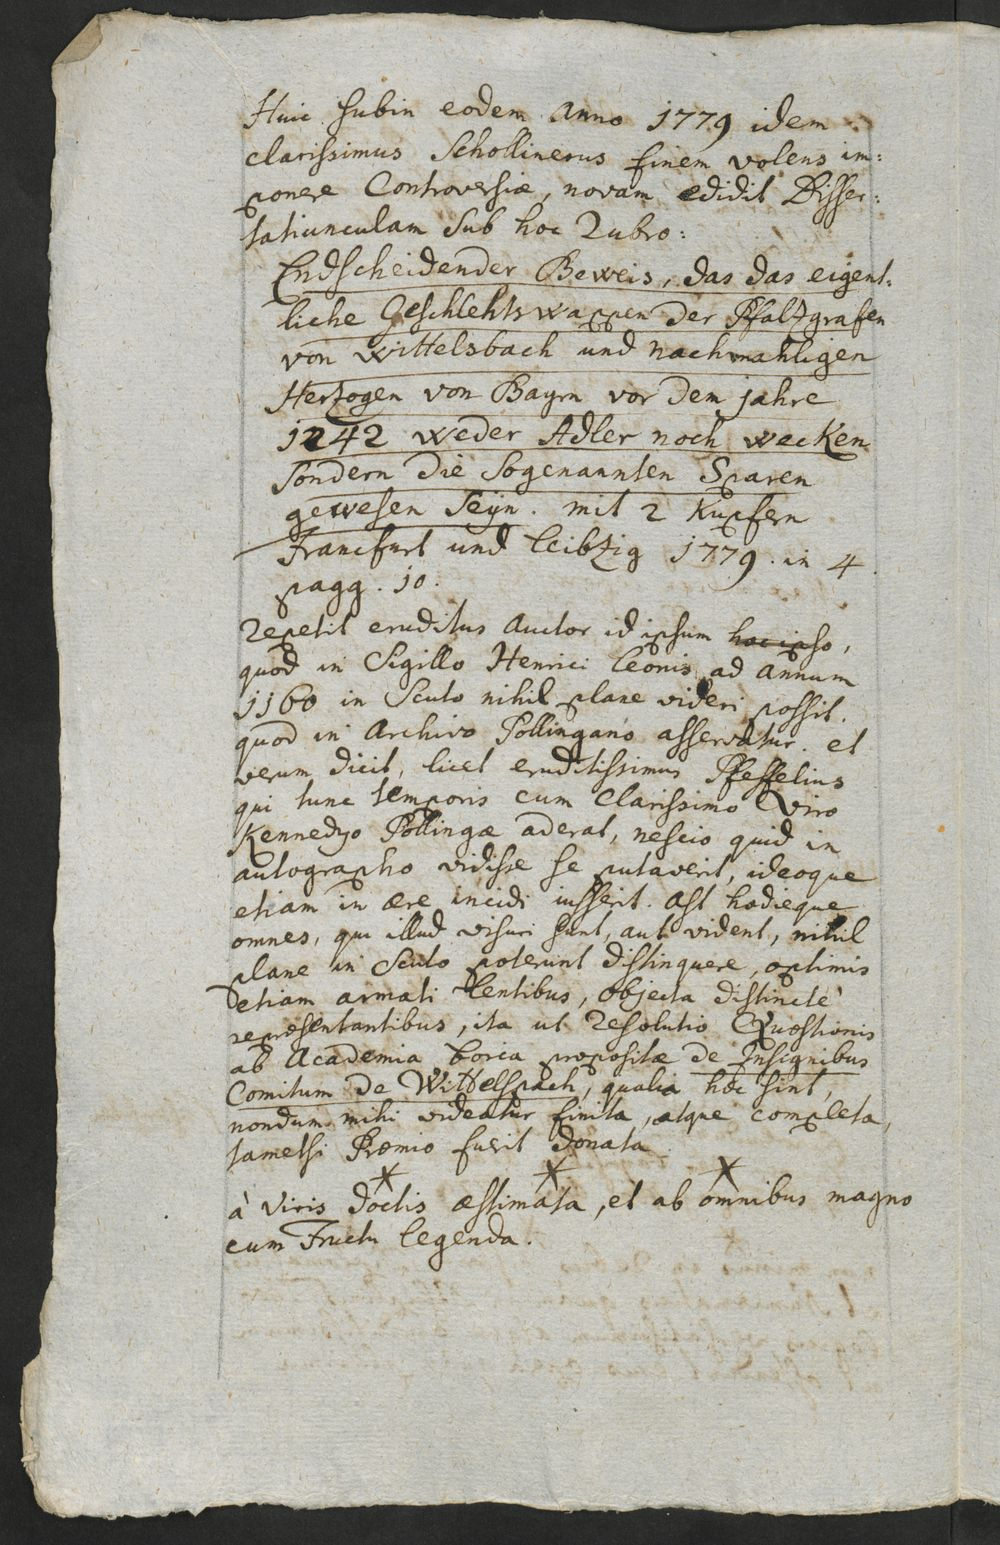 Huic subin eodem anno 1779 idem
clarissimus Schollinerus finem volens im:
ponere Controversiæ, novam edidit Disser:
tatiunculam sub hoc Rubro:
Endscheidender Beweis, das das eigent:
liche Geschlehtswappen der Pfaltzgrafen
von Wittelsbach und nachmahligen
Hertzogen von Bayrn vor dem jahre
1242 weder Adler noch wecken
sondern die sogenannten Sparen
gewesen seyn. mit 2 Kupfern
Francfurt und Leibtzig 1779. in 4.
pagg. 10.
Repetit eruditus Auctor id ipsum hoc ipso,
quod in Sigillo Henrici Leonis ad annum
1160 in Scuto nihil plane videri possit.
quod in Archivo Pollingano asservatur. et
verum dicit, licet eruditissimus Pfeffelius
qui tunc temporis cum Clarissimo Viro
Kennedyo Pollingæ aderat, nescio quid in
autographo vidisse se putaverit, ideoque
etiam in ære incidi iusserit. Ast hodieque
omnes, qui illud visuri sunt, aut vident, nihil
plane in Scuto poterunt distinguere, optimis
etiam armati Lentibus, objecta distincte
repræsentantibus, ita ut Resolutio Quæstionis
ab Academia boica propositæ de Insignibus
Comitum de Wittelspach, qualia hoc sint,
nondum mihi videatur finita, atque completa,
tametsi Præmio fuerit donata.
* * *
à Viris doctis æstimata, et ab omnibus magno
cum Fructu legenda.